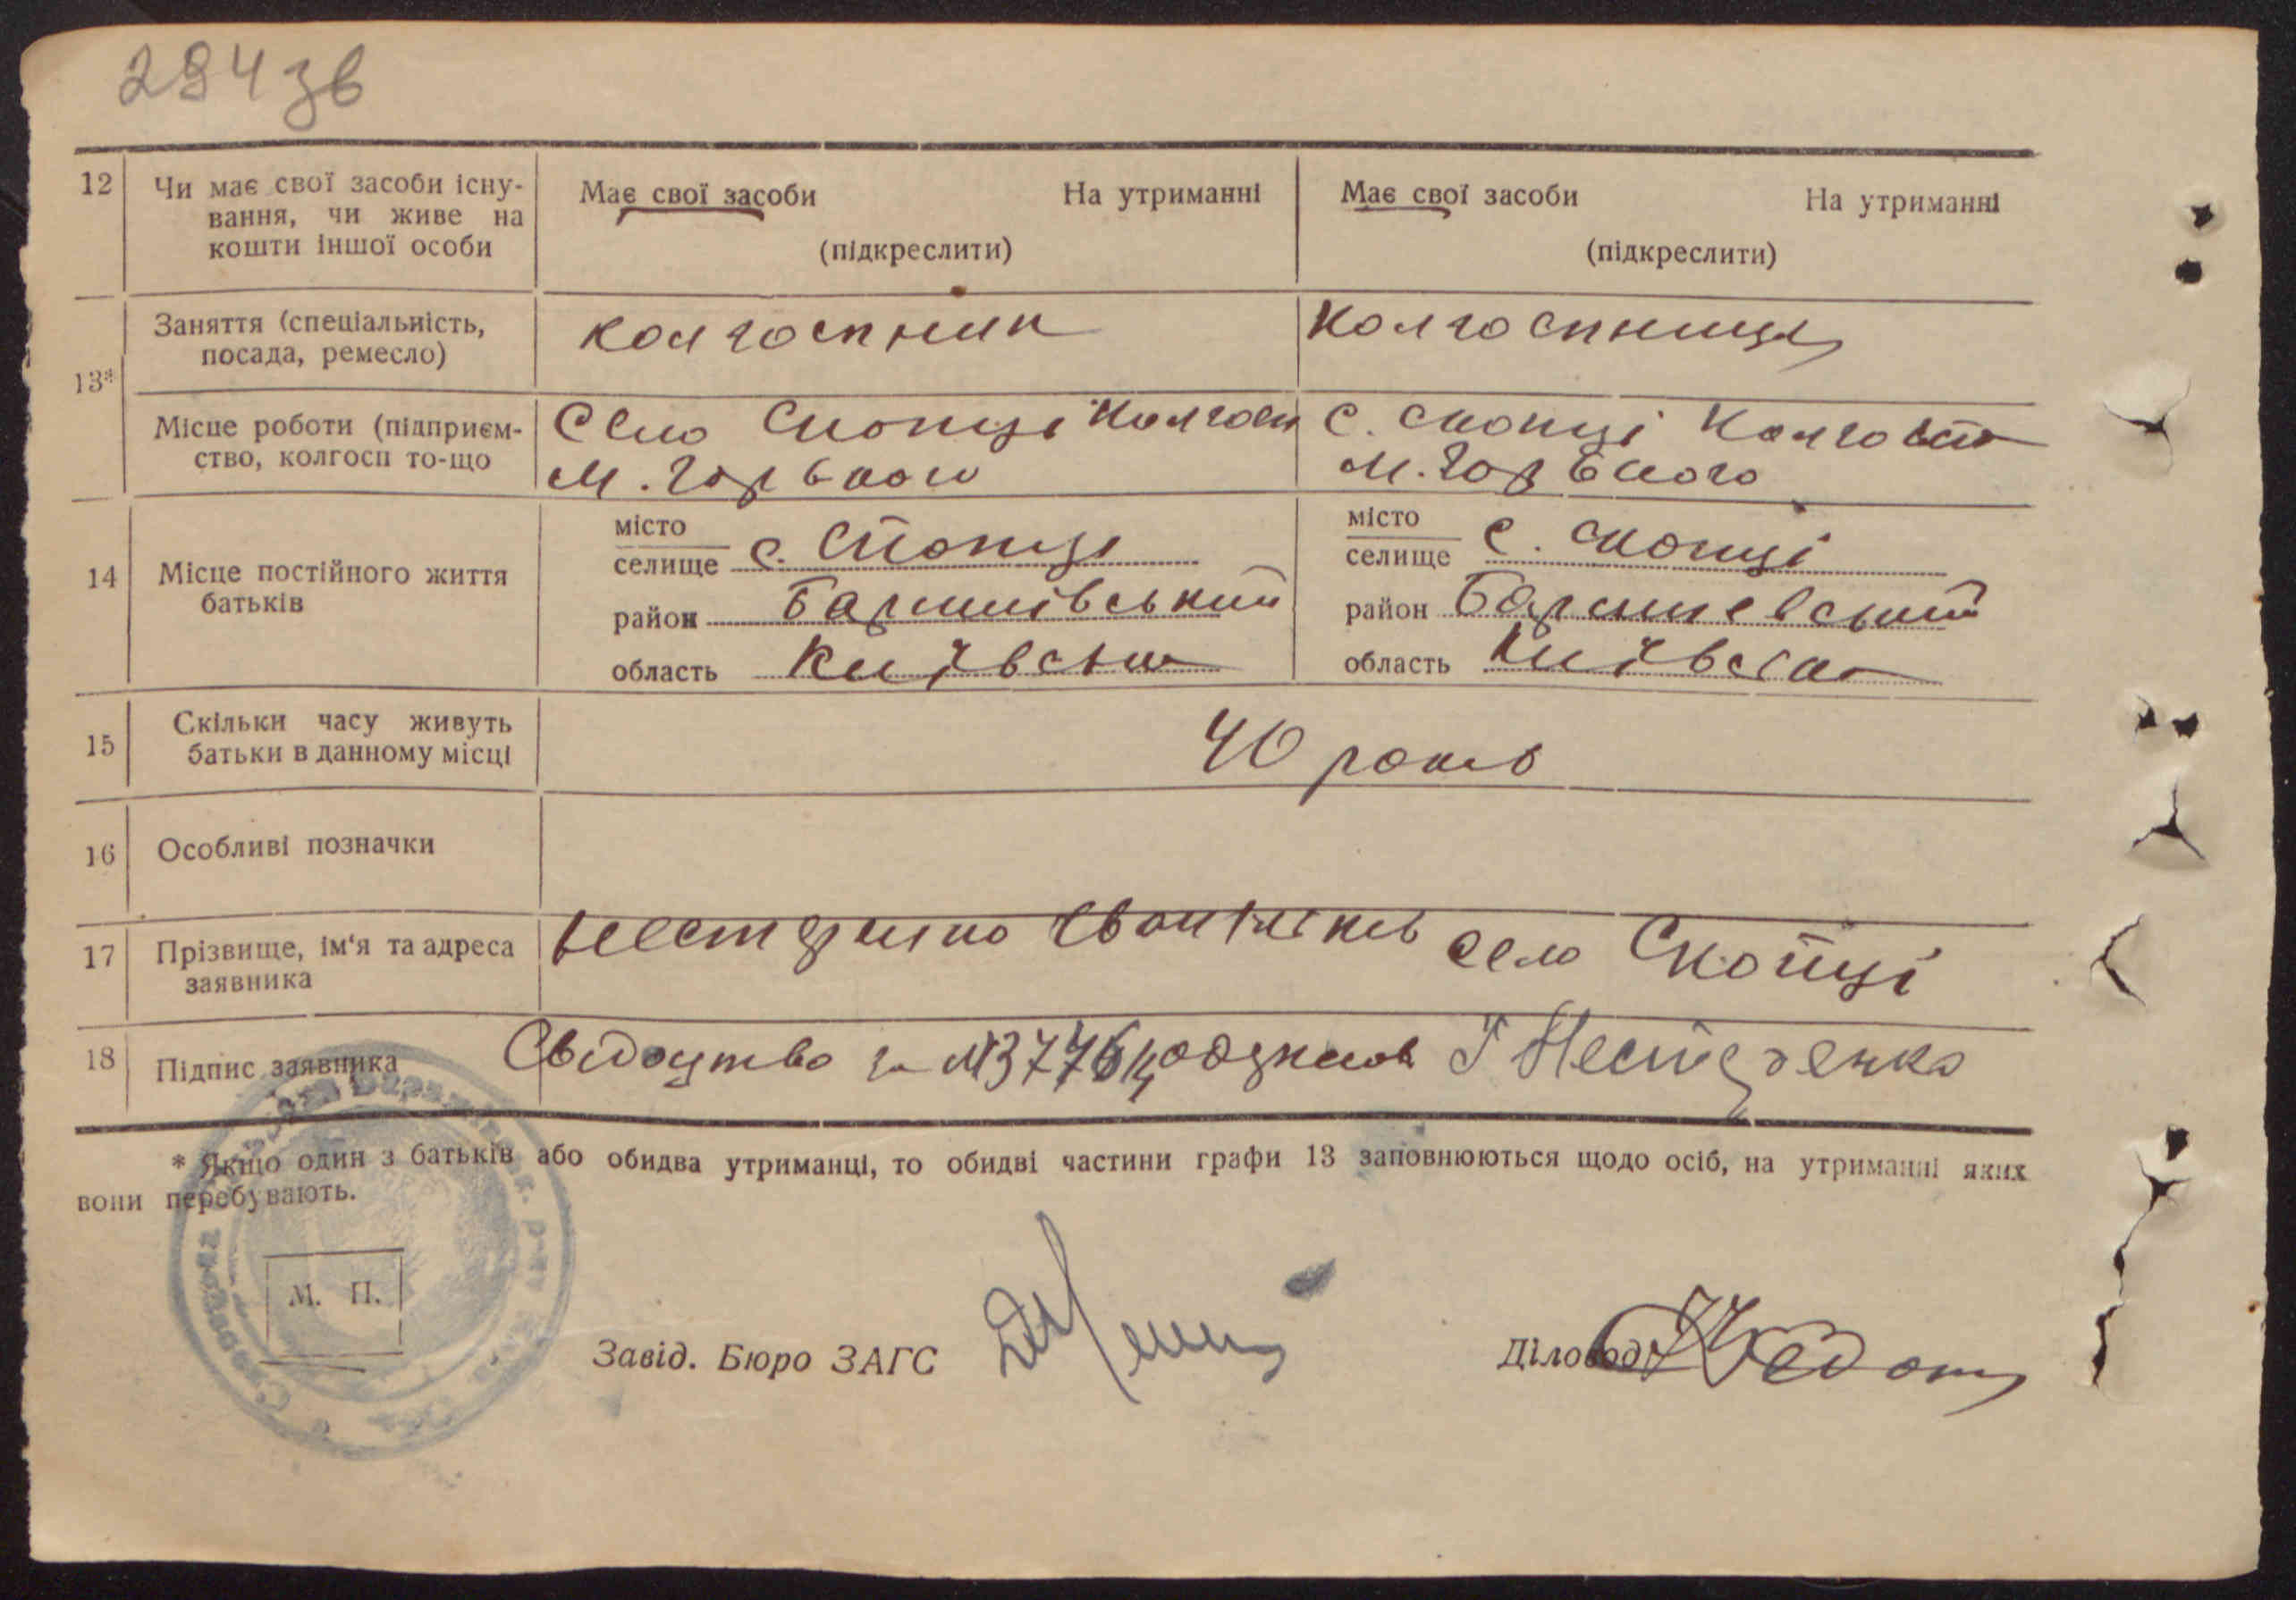 294 зв
12 Чи має свої засоби існу- Має свої засоби На утриманні Має свої засоби На утриманні
вання, чи живе на
кошти іншої особи (підкреслити) (підкреслити)
Заняття (спеціальність, колгоспник колгоспниця
посада, ремесло)
13*
Місце роботи (підприєм- Село Скопці Колгосп с. Скопці Колгосп
ство, колгосп то-що М. Горького М. Горького
14 Місце постійного життя місто місто
батьків селище с. Скопці селище с. Скопці
район Баришівський район Баришевський
область Київська область Київська
15 Скільки часу живуть 40 років
батьки в данному місці
16 Особливі позначки
17 Прізвище, ім'я та адреса село Скопці
заявника
18 Підпис заявника Свідоцтво за Нестеренко
* Якщо один з батьків або обидва утриманці, то обидві частини графи 13 заповнюються щодо осіб, на утриманні яких
вони перебувають.
М. П.
Завід. Бюро ЗАГС Діловод